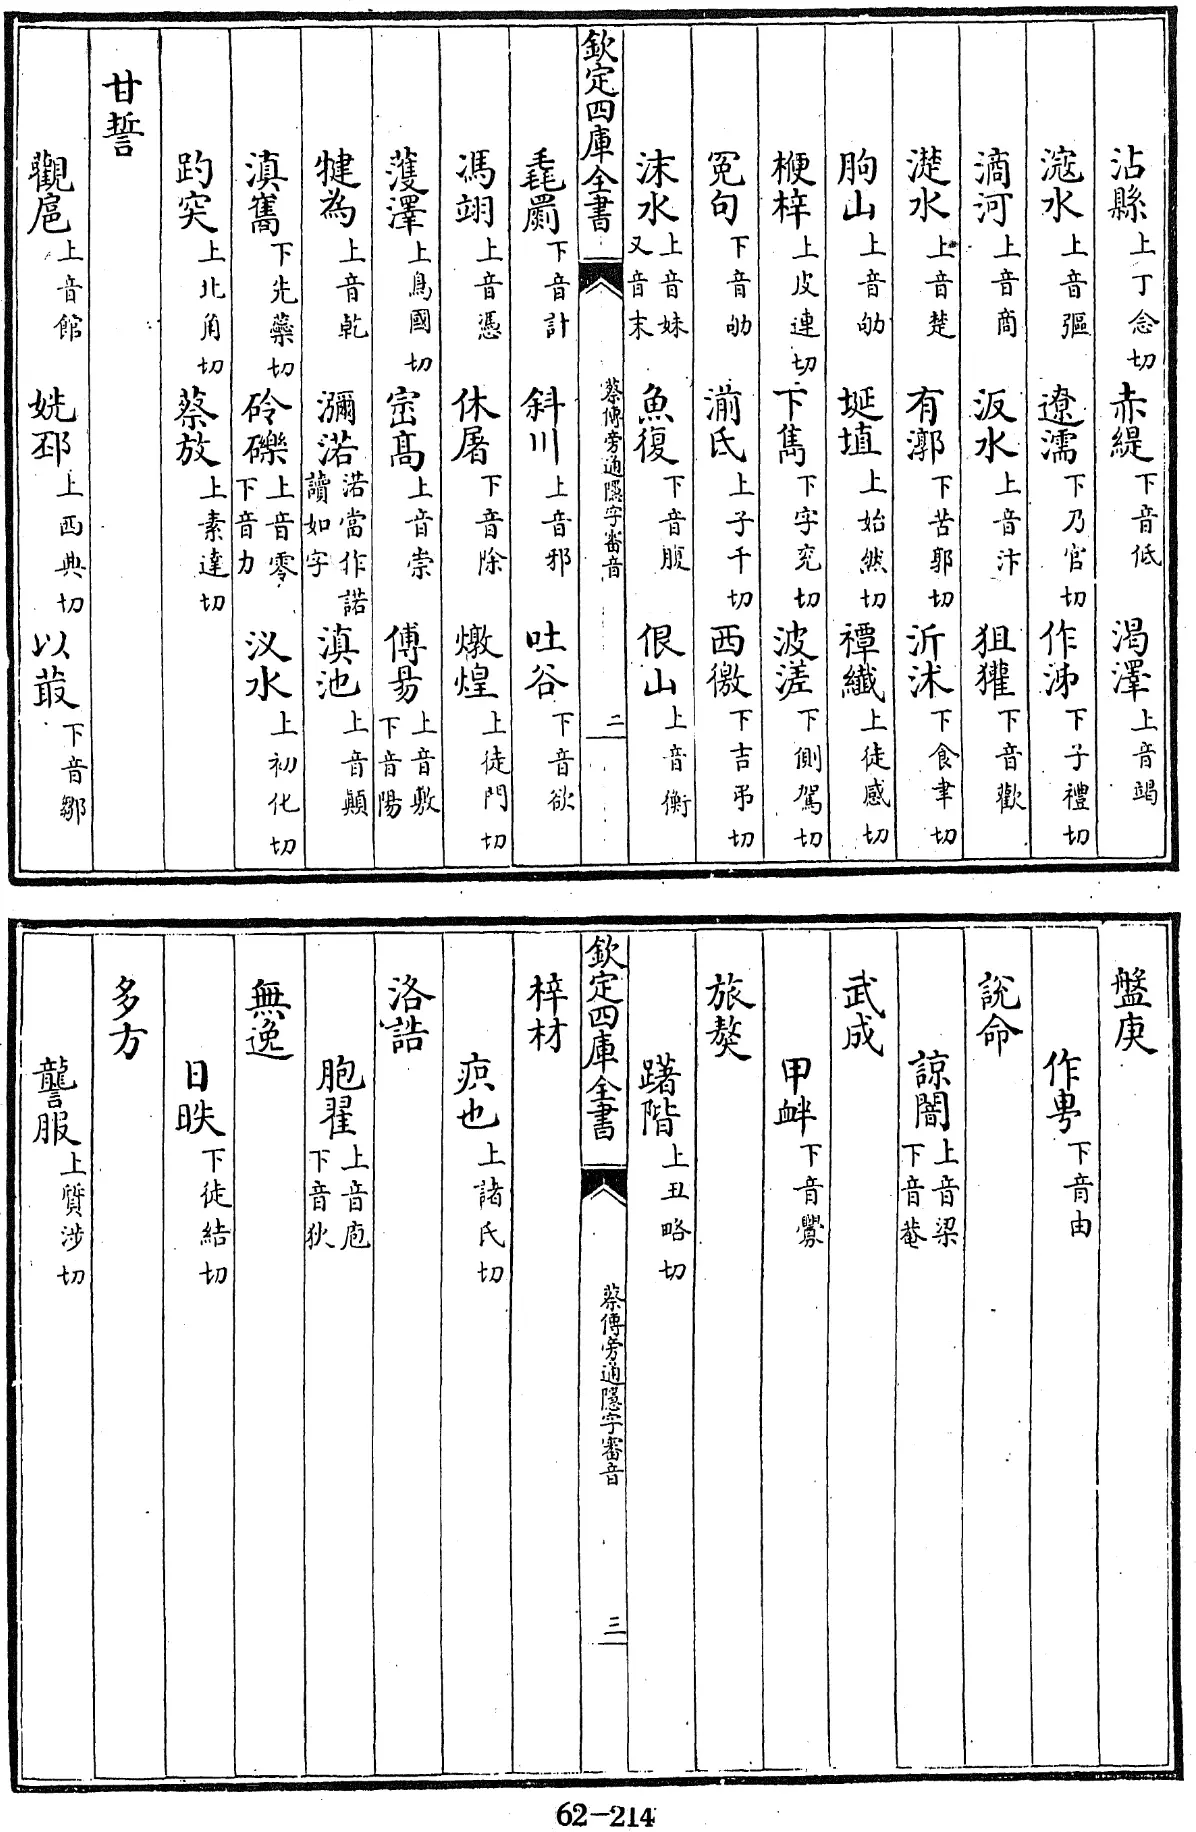 沾縣上丁念切 赤緹下音低 渴澤上音竭
滱水上音彄 遼濡下乃官切 作泲下子禮切
滳河上音商 汳水上音汴 狙獾下音歡
濋水上音楚 有漷下苦郭切 沂沭下食聿切
朐山上音劬 埏埴上始然切 禫纖上徒感切
楩梓上皮連切 下雋下字兖切 波溠下側駕切
冤句下音劬 湔氐上子千切 西徼下吉弔切
沬水上音妹又音末 魚復下音腹 佷山上音衡
欽定四庫全書 蔡傳旁通隱字審音 二
毳罽下音計 斜川上音邪 吐谷下音欲
馮翊上音憑 休屠下音除 燉煌上徒門切
濩澤上鳥國切 崈高上音崇 傅昜上音敷下音陽
犍為上音乾 瀰渃渃當作諾讀如字 滇池上音顛
滇巂下先藥切 砱礫上音零下音力 汊水上初化切
趵突上北角切 蔡放上素達切
甘誓
觀扈上音館 姺邳上西典切 以菆下音鄒
盤庚
作甹下音由
說命
諒闇上音梁下音菴
武成
甲衅下音釁
旅獒
躇階上丑略切
欽定四庫全書 蔡傳旁通隱字審音 三
梓材
疻也上諸氏切
洛誥
胞翟上音庖下音狄
無逸
日昳下徒結切
多方
讋服上質涉切
62-214